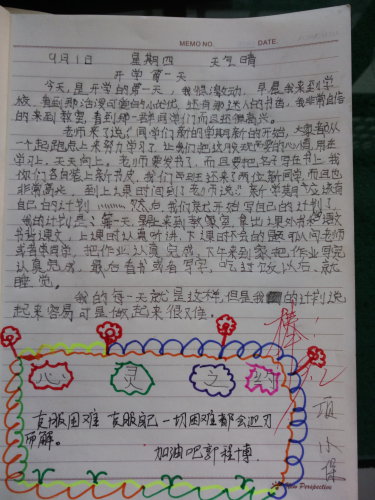 MEMO NO. DATE.
9月1日 星期四 天气晴
开学第一天
今天,是开学的第一天,我很激动,早晨我来到学
校,看到那活泼可爱的小,还有那迷人的书香,我非常自信
的来到教室,看到那一群同学们而且还很高兴。
老师来了说:"同学们新的学期新的开始,大家都从
一个起跑点上来努力学习了,让我们把这股的心情,用在
学习上,天天向上。老师要发书了,而且要把名字写在书上,我
你们各自装上新书皮,我们班还来了两位新同学,而且也
非常高兴,到上课时间到了老师说:"新学期应该有
自己的计划……然后,我们就开始写自己的计划了,
我的计划是:每一天,早上来到教室里,拿出课外书和语文
书背课文,上课时认真听讲,下课时不会的题可以问老师
或者同学,把作业认真完成,下午来到家把,作业写完
认真完成,最后看书或者写字,吃过饭以后,就
睡觉。
我的每一天就是这样,但是我的计划说
起来容易可是做起来很难。
心灵之约
克服困难 克服自己 一切困难都会迎刃
而解。
加油吧郭程博
项小保
Perspective